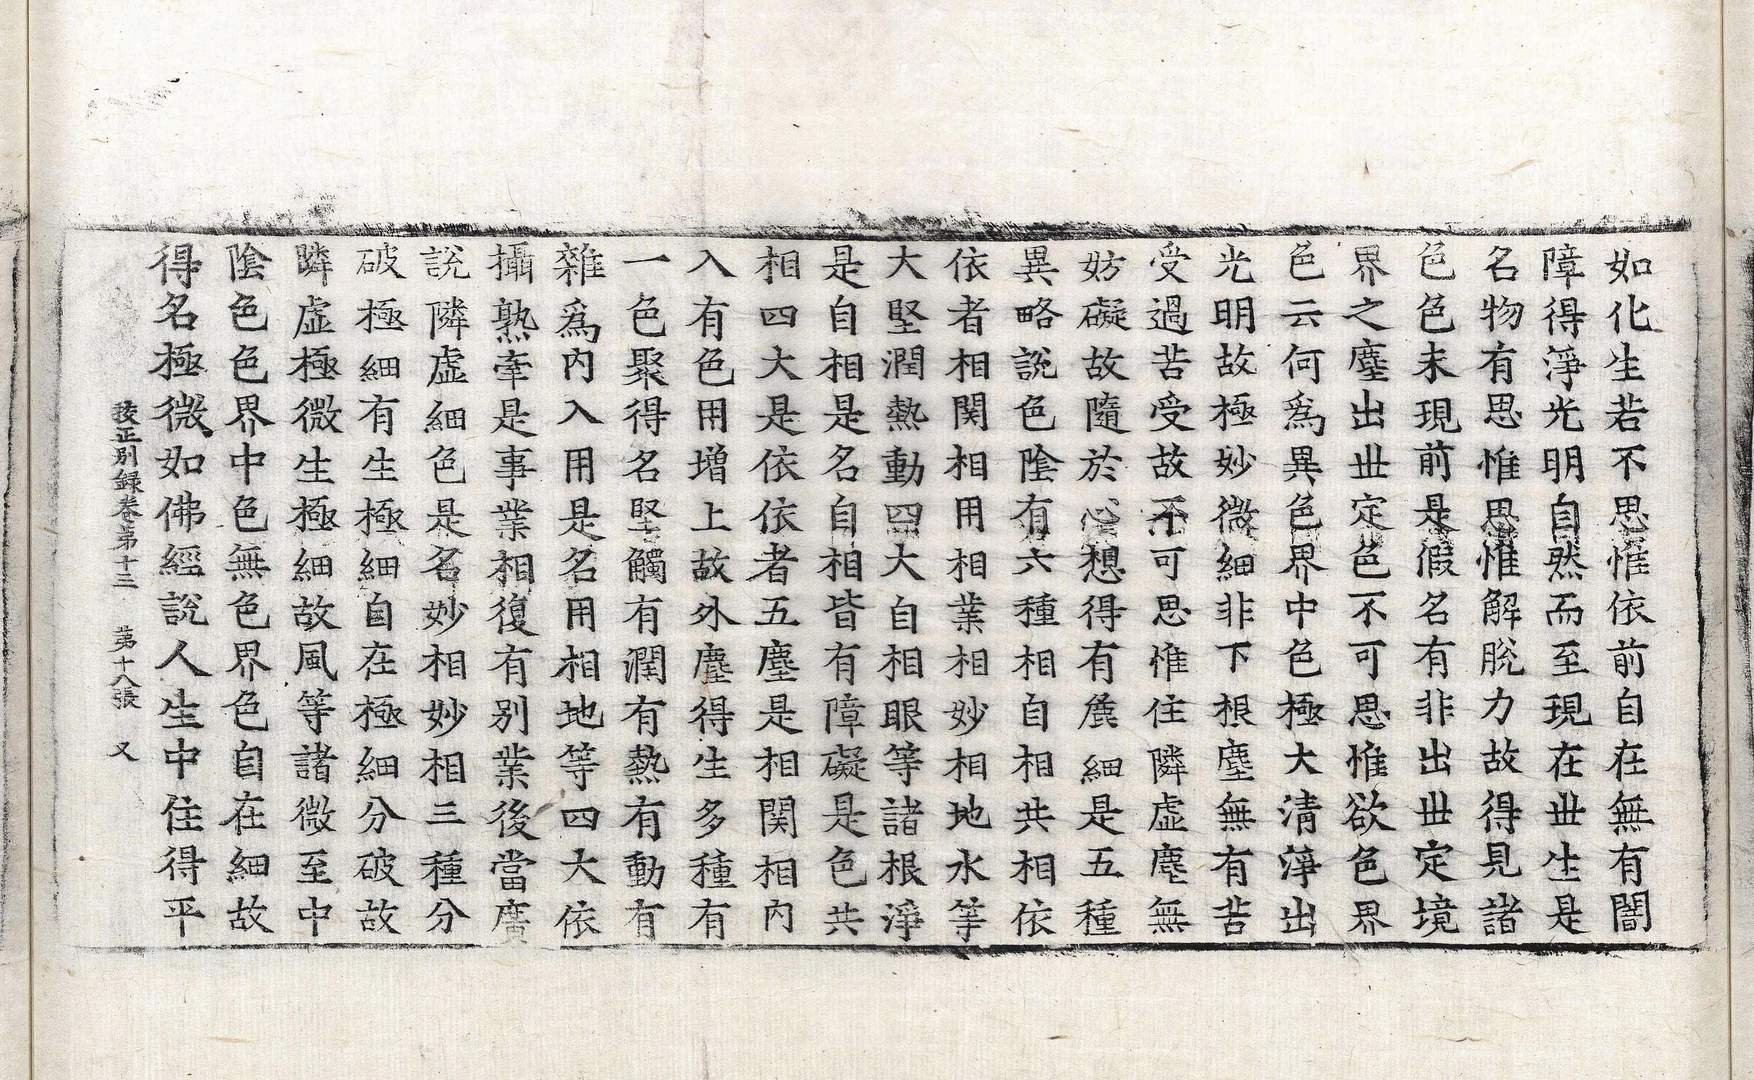 如化生若不思惟依前自在無有闇
障得淨光明自然而至現在丗生是
名物有思惟思惟解脫力故得見諸
色色未現前是假名有非出丗定境
界之塵出丗定色不可思惟欲色界
色云何爲異色界中色極大清淨出
光明故極妙微細非下根塵無有苦
受過苦受故不可思惟住隣虛塵無
妨礙故隨於心想得有麁細是五種
異略說色陰有六種相自相共相依
依者相関相用相業相妙相地水等
大堅潤熱動四大自相眼等諸根淨
是自相是名自相皆有障礙是色共
相四大是依依者五塵是相関相內
入有色用增上故外塵得生多種有
一色聚得名堅觸有潤有熱有動有
雜爲內入用是名用相地等四大依
攝熟牽是事業相復有別業後當廣
說隣虛細色是名妙相妙相三種分
破極細有生極細自在極細分破故
隣虛極微生極細故風等諸微至中
陰色色界中色無色界色自在細故
得名極微如佛經說人生中住得平
挍正別録卷第十三　第十八張　又